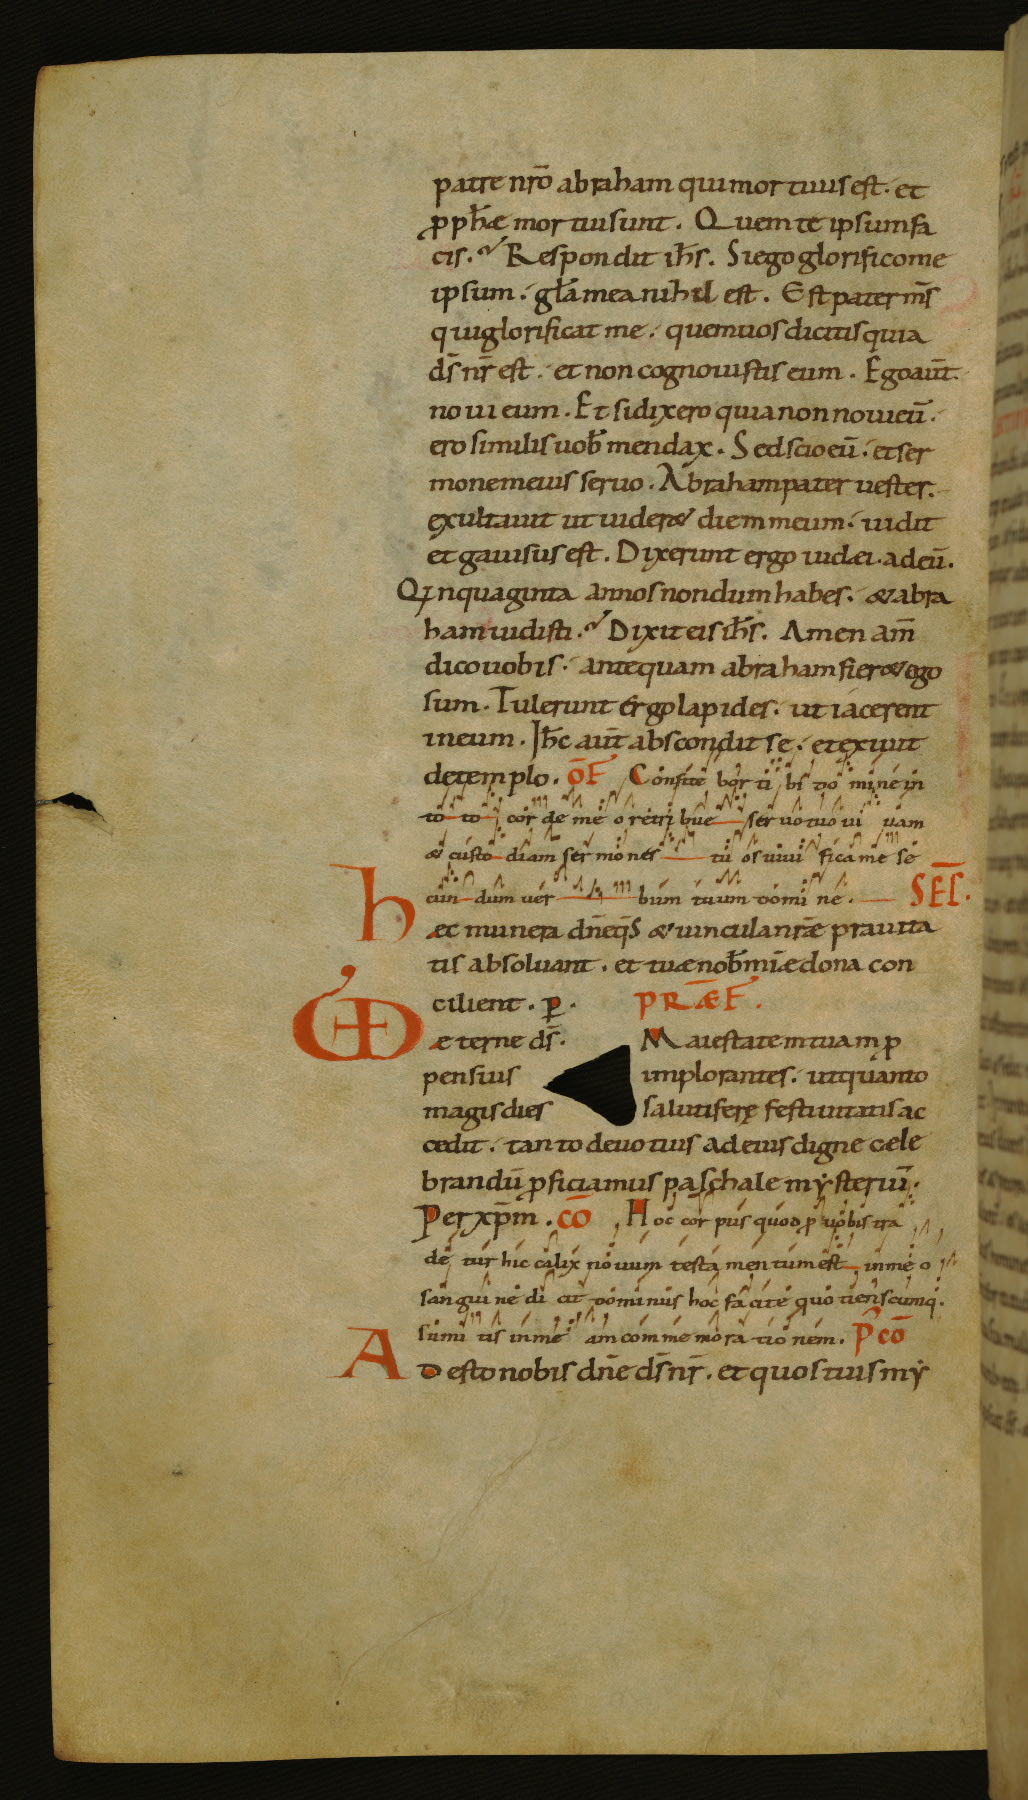 patre nr̄o abraham qui mortuus est. et
ꝓph̄æ mortui sunt. Quem te ipsum fa
cis. Respondit ih̄s. Si ego glorifico me
ipsum. gl̄a mea nihil est. Est pater m̄s
qui glorificat me. quem uos dicitis quia
d̄s nr̄ est. et non cognouistis eum. Ego aūt
noui eum. Et si dixero quia non noui eū.
ero similis uob̄ mendax. Sed scio eū. et ser
monem eius seruo. Abraham pater uester.
exultauit ut uider& diem meum. uidit
et gauisus est. Dixerunt ergo iudæi. ad eū.
Quinquaginta annos nondum habes. & abra
ham uidisti. Dixit eis ih̄s. Amen am̄
dico uobis. antequam abraham fier& ego
sum. Tulerunt ergo lapides. ut iacerent
in eum. Ih̄c aūt abscondit se. et exiuit
de templo. OF̄ Confitebor tibi domine in
toto corde meo retribue seruo tuo uiuam
& custodiam sermones tuos uiuifica me se
cundum uerbum tuum domine. SEC̄.
Hec munera dn̄e qs̄ & uincula nr̄æ prauita
tis absoluant. et tuæ nob̄ mīæ dona con
cilient. ꝑ. PRÆF̄.
VD æterne d̄s. Maiestatem tuam ꝓ
pensius implorantes. ut quanto
magis dies salutiferę festiuitatis ac
cedit. tanto deuotius ad eius digne cele
brandū ꝓficiamus paschale mẏsteriū.
Per xp̄m. CŌ Hoc corpus quod ꝓ uobis tra
detur hic calix nouum testamentum est in meo
sanguine dicit dominus hoc facite quotienscumq;
sumitis in meam commemorationem. P̄ CŌ
Adesto nobis dn̄e d̄s nr̄. et quos tuis mẏ